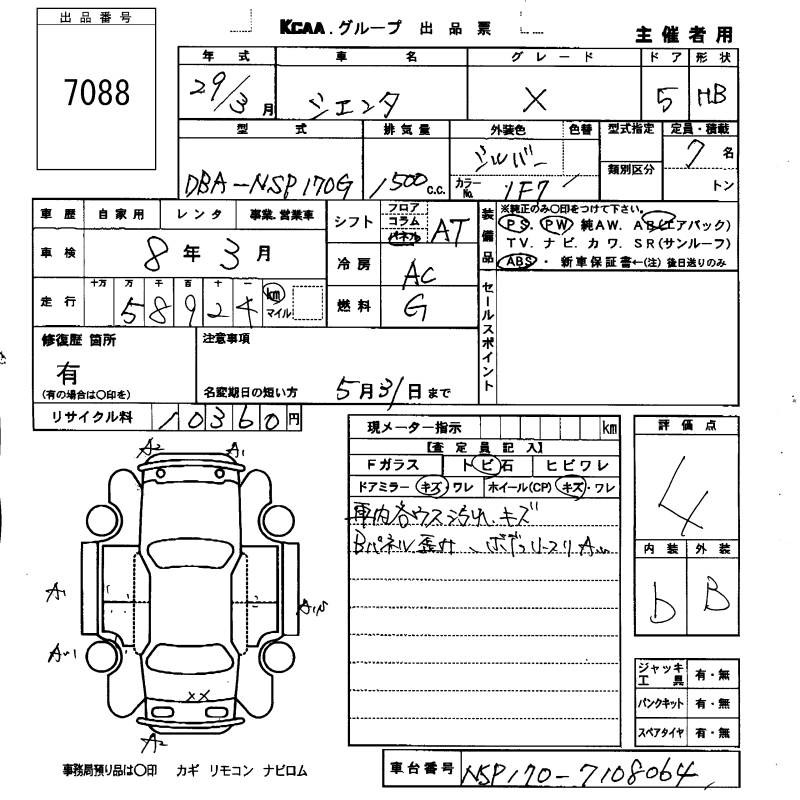 出品番号
7088
KCAA.グループ 出品票
主催者用
年式 車名 グレード ドア 形状
29/3月 シエンタ X 5 HB
型式 排気量 外装色 色替 型式指定 定員・積載
DBA-NSP170G 1500c.c. シルバー 7名
カラーNo. 1F7 類別区分 トン
車歴 自家用 レンタ 事業.営業車
車検 8年3月
走行 十万 万 千 百 十 一
58924 km マイル
シフト フロア コラム パネル AT
冷房 AC
燃料 G
装備品 ※純正のみ〇印をつけて下さい。
PS. PW. 純AW. AB(エアバック)
TV. ナビ. カワ. SR(サンルーフ)
ABS ・ 新車保証書←(注)後日送りのみ
セールスポイント
修復歴 箇所
有
(有の場合は〇印を)
注意事項
名変期日の短い方 5月31日まで
リサイクル料 10360円
現メーター指示 km
【査定員記入】
Fガラス トビ石 ヒビワレ
ドアミラー キズ・ワレ ホイール(CP) キズ・ワレ
車内各ウス汚れ キズ
Bパネル歪み、
評価点
4
内装 外装
b B
A2 A1
A1
A2
XX
ジャッキ工具 有・無
パンクキット 有・無
スペアタイヤ 有・無
事務局預り品は〇印 カギ リモコン ナビロム
車台番号 NSP170-7108064